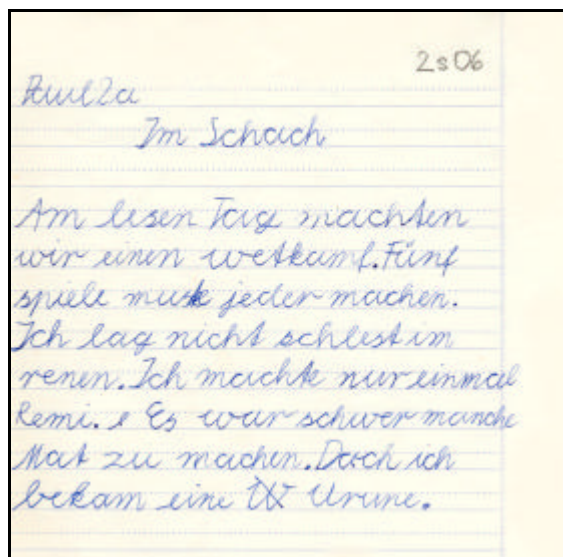 2s06
Paul 2a
Im Schach
Am lesen Tag machten
wir einen wetkamf. Fünf
spiele muste jeder machen.
Ich lag nicht schlest im
renen. Ich machte nur einmal
Remi. Es war schwer manche
Mat zu machen. Doch ich
bekam eine Urune.